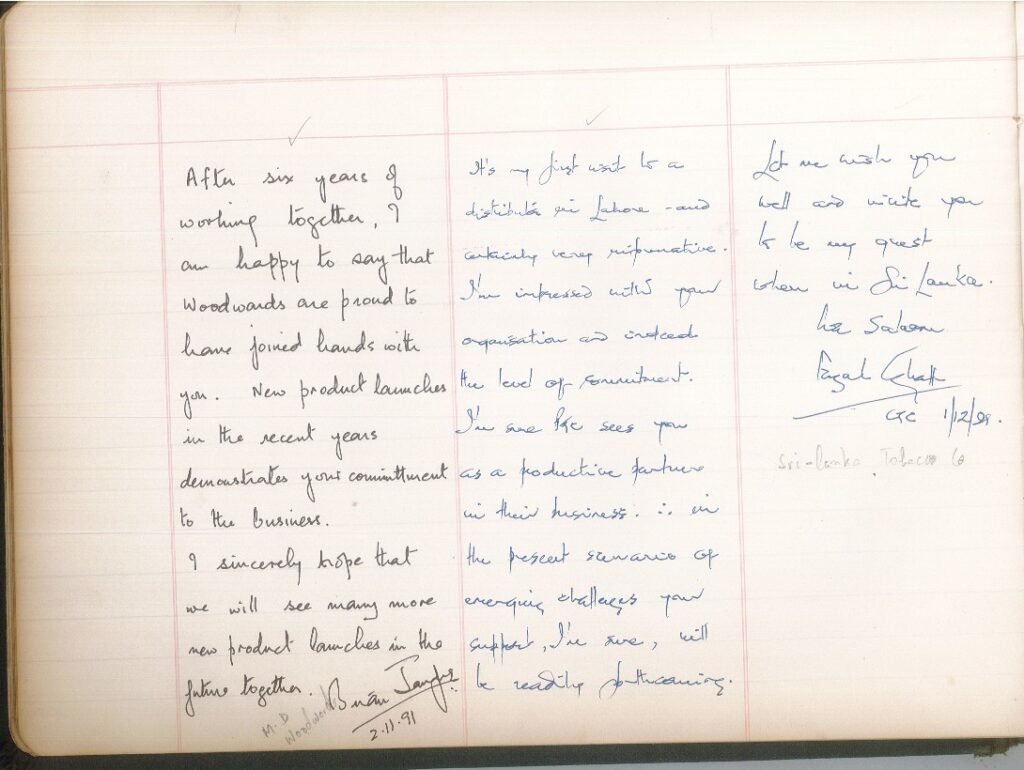 After six years of
working together, I
am happy to say that
Woodwards are proud to
have joined hands with
you. New product launches
in the recent years
demonstrates your committment
to the business.
I sincerely hope that
we will see many more
new product launches in the
future together.
Brian
2.11.91
M.D
Woodwards
It's my first visit to a
distributor in Lahore - and
certainly very informative.
I'm impressed with your
organisation and indeed
the level of commitment.
I'm sure sees you
as a productive partner
in their business. ∴ in
the present scenario of
emerging challenges your
support, I'm sure, will
be readily forthcoming.
Let me wish you
well and invite you
to be my guest
when in Sri Lanka.
1/12/
Sri-lanka Tobacco Co